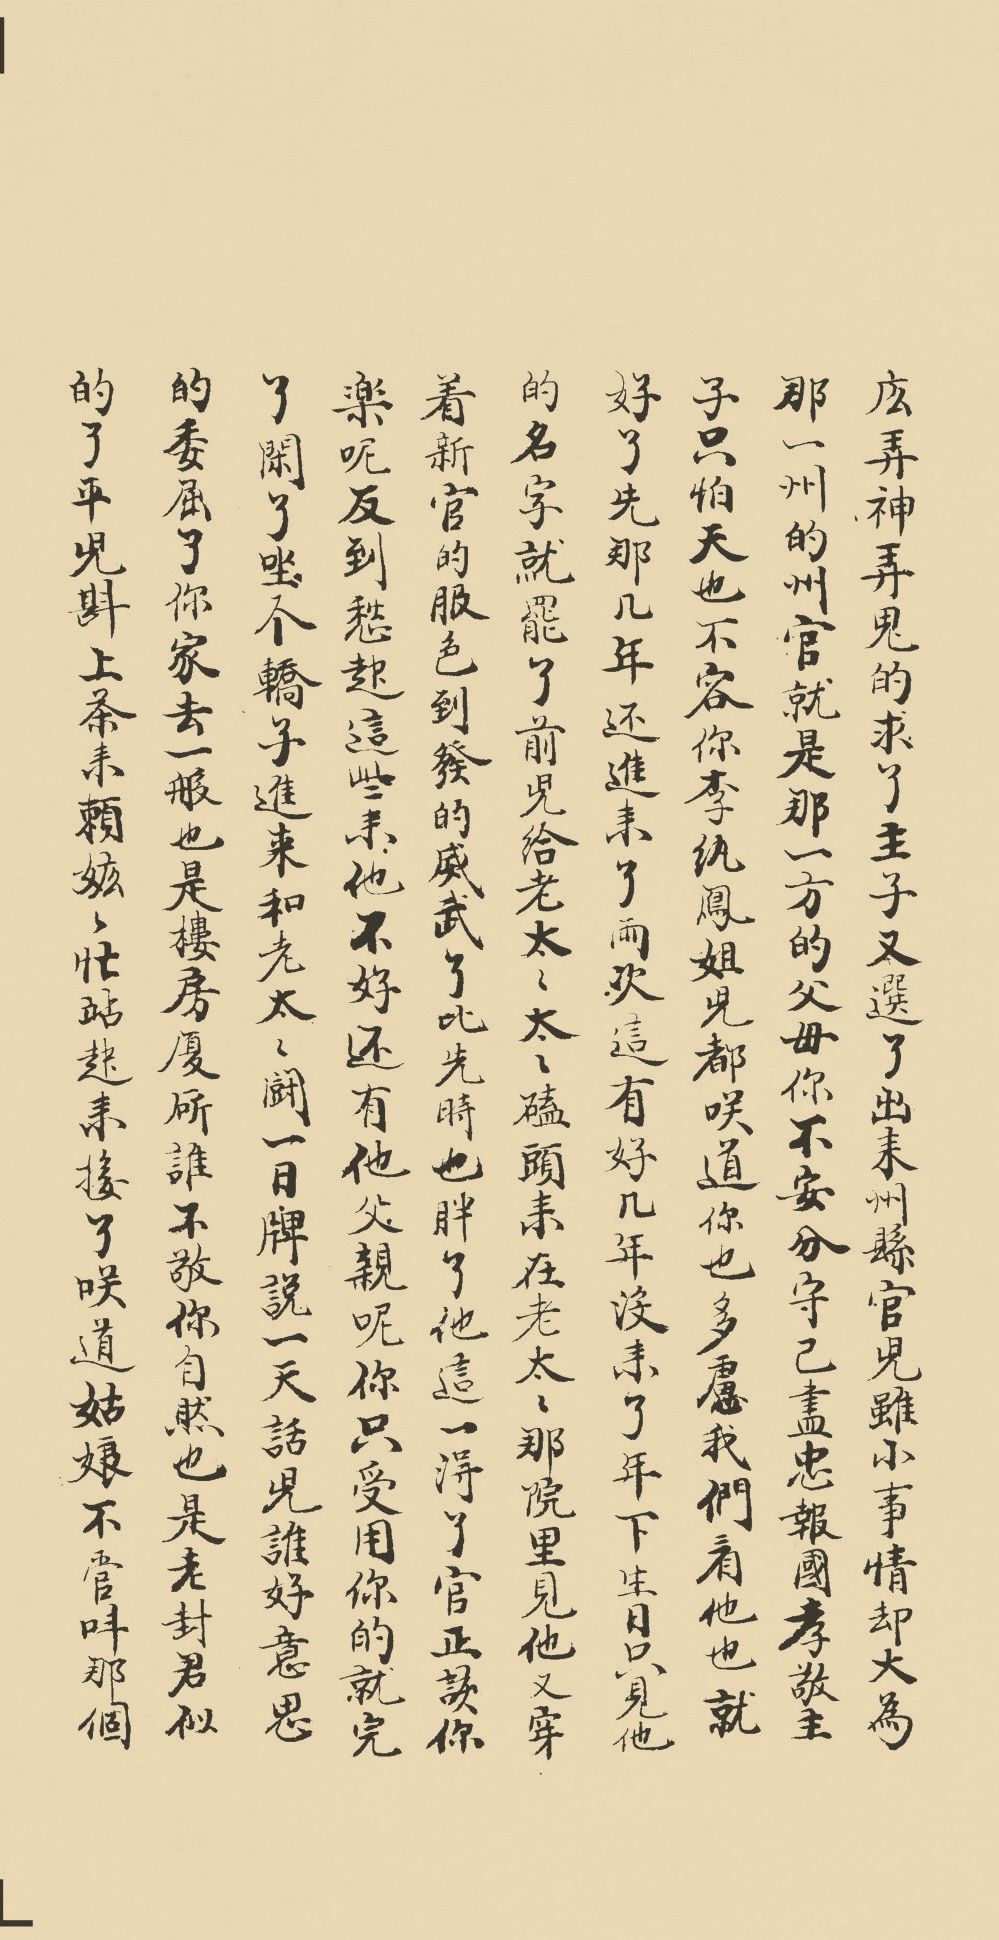 庅弄神弄鬼的求了主子又選了出来州縣官児雖小事情却大為
那一州的州官就是那一方的父母你不安分守己盡忠報國孝敬主
子只怕天也不容你李纨鳳姐児都咲道你也多慮我們看他也就
好了先那几年还進来了兩次這有好几年没来了年下生日只見他
的名字就罷了前児給老太〻太〻磕頭来在老太〻那院里見他又穿
着新官的服色到發的威武了比先時也胖了他這一得了官正該你
楽呢反到愁起這些来他不好还有他父親呢你只受用你的就完
了閑了坐个轎子進来和老太〻闘一日牌説一天話児誰好意思
的委屈了你家去一般也是樓房厦所誰不敬你自然也是老封君似
的了平児斟上茶来賴嬷〻忙跕起来接了咲道姑娘不管呌那個